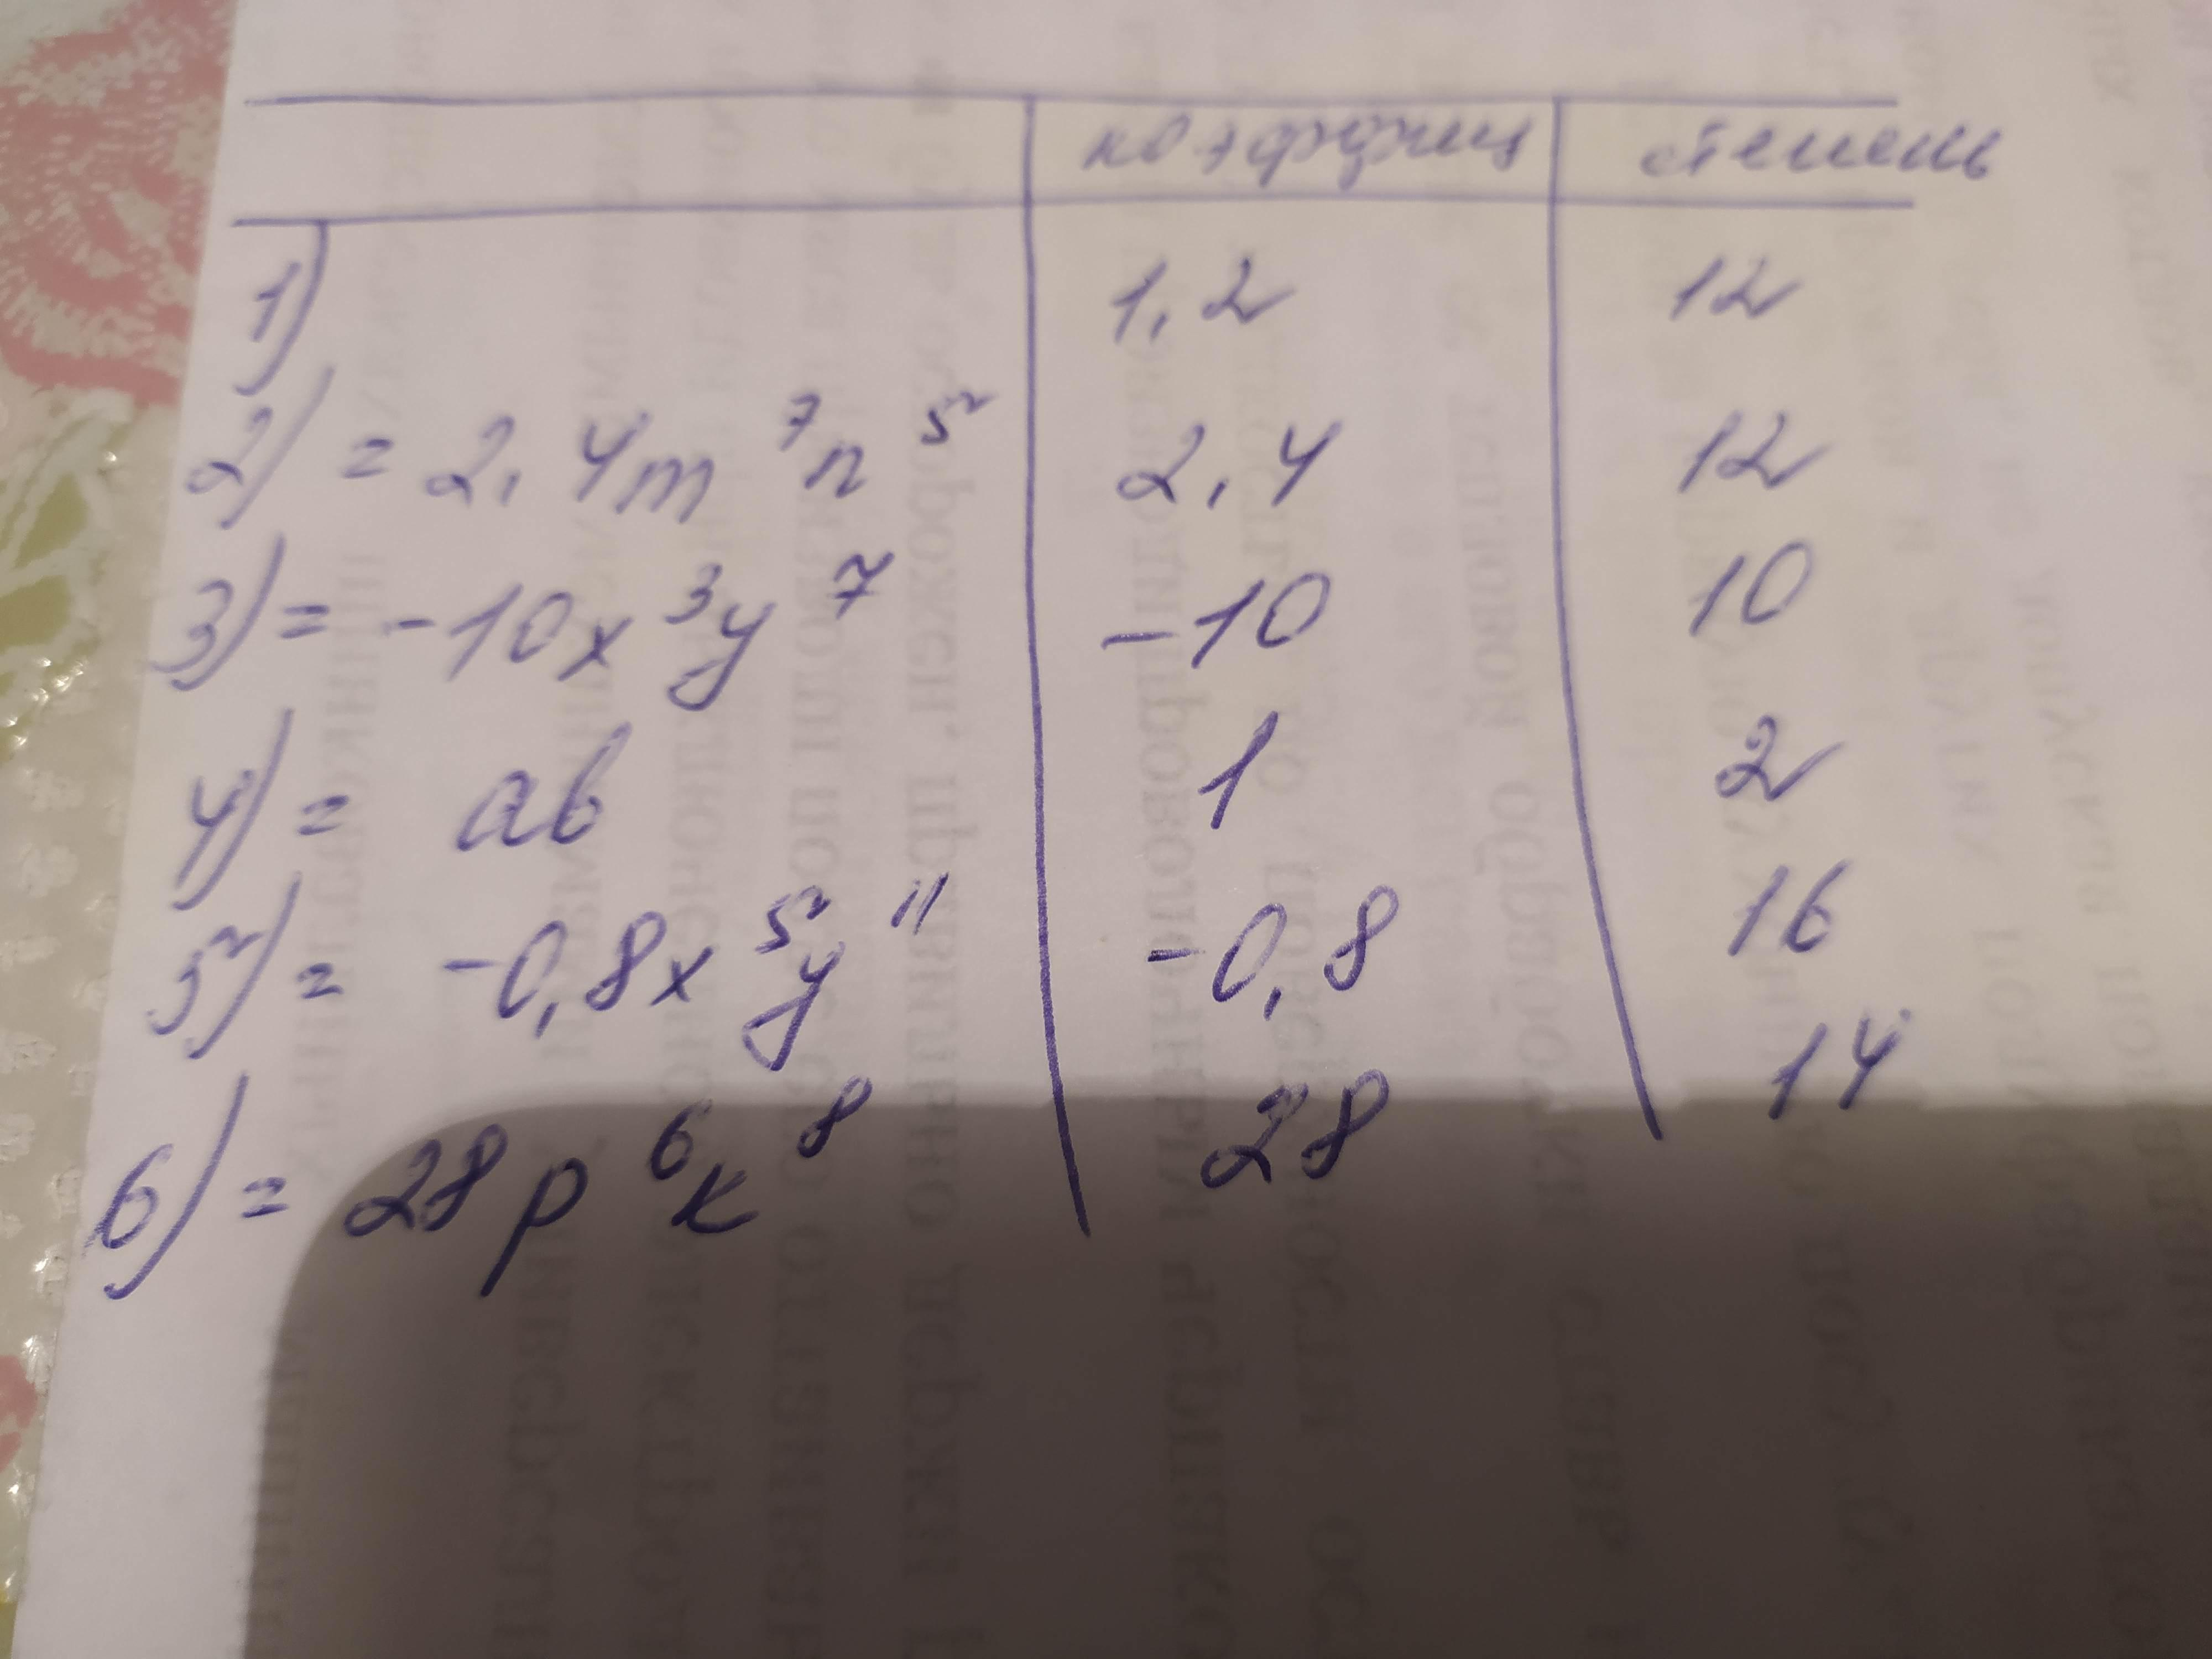 коэффиц степень
1) 1,2 12
2) = 2,4m⁷n⁵ 2,4 12
3) = -10x³y⁷ -10 10
4) = ab 1 2
5) = -0,8x⁵y¹¹ -0,8 16
6) = 28p⁶k⁸ 28 14